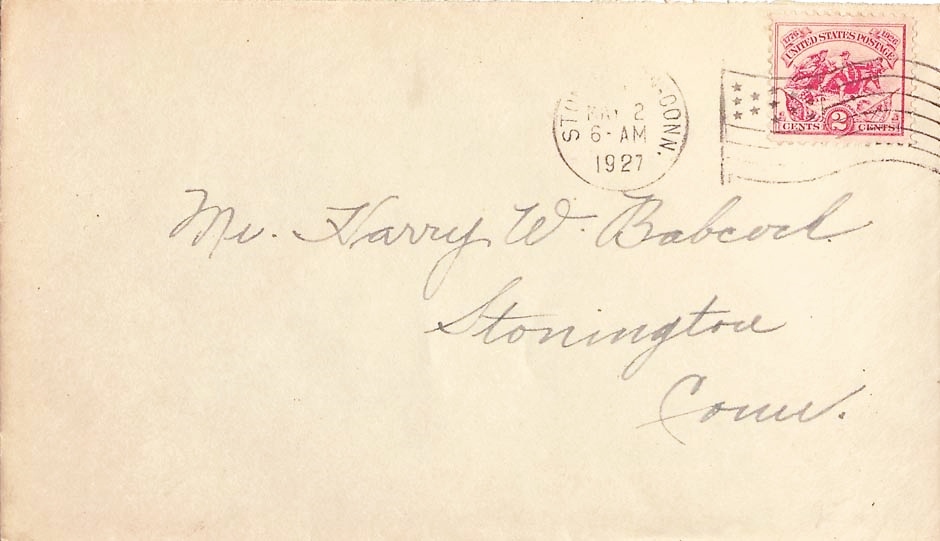 1776 1926
UNITED STATES POSTAGE
CENTS 2 CENTS
CONN.
MAY 2
6-AM
1927
Mr. Harry W. Babcock
Stonington
Conn.